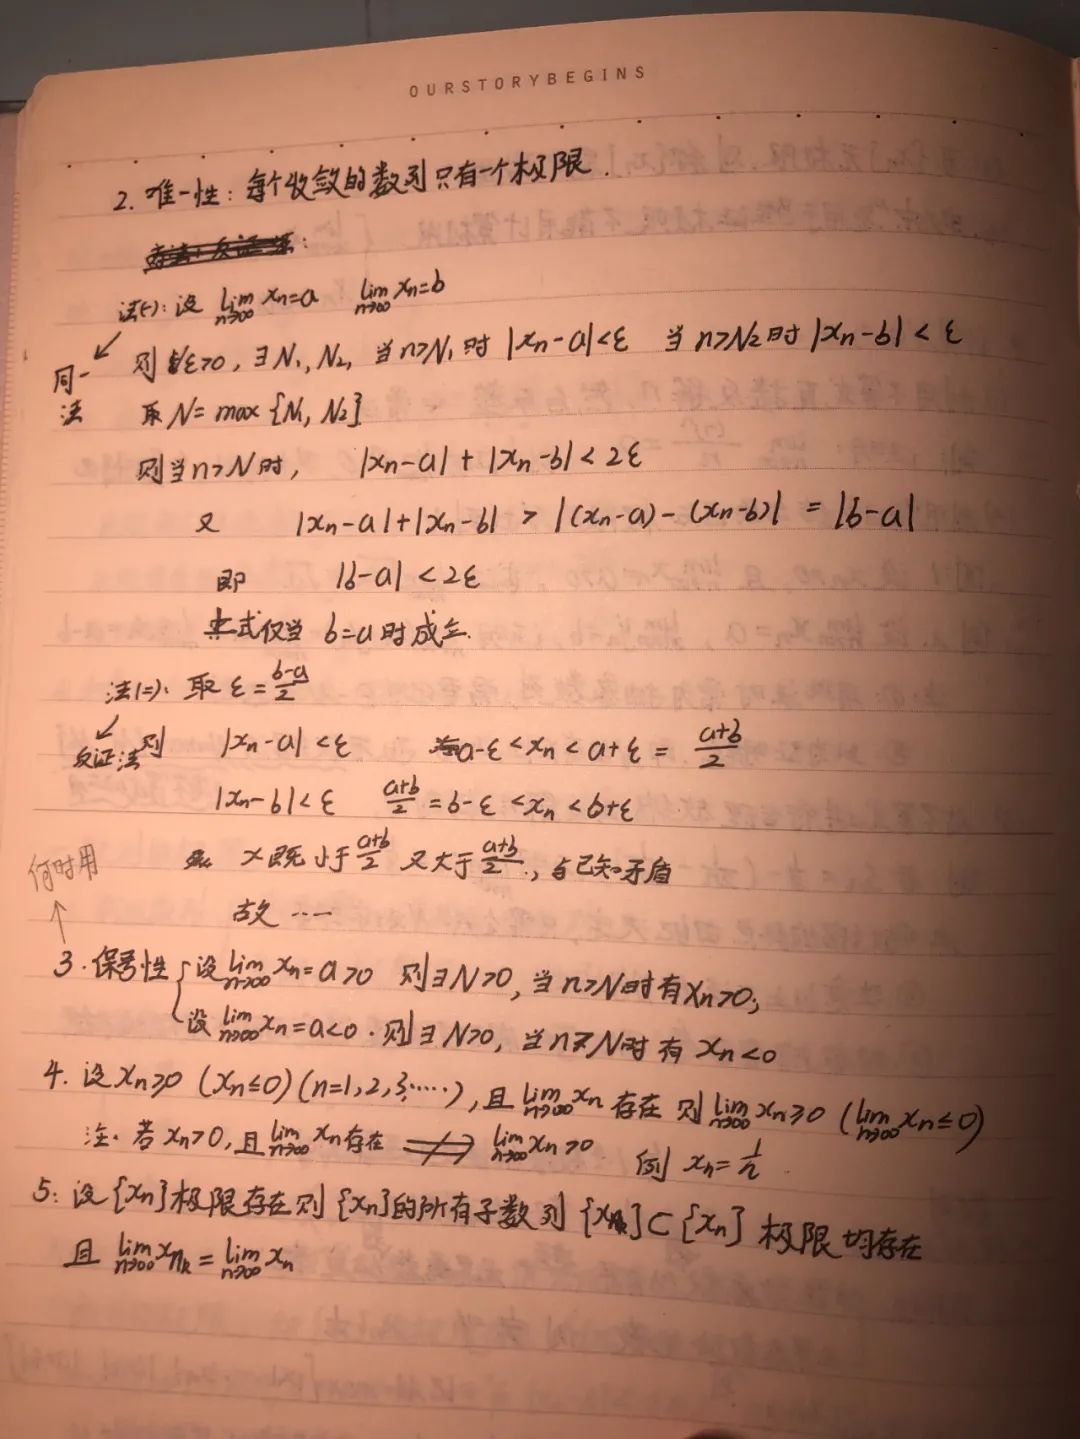 OURSTORYBEGINS
2. 唯一性：每个收敛的数列只有一个极限.
法(一)：设 lim n→∞ xn=a lim n→∞ xn=b
同一法
则 ∀ε>0, ∃N1, N2, 当n>N1时 |xn-a|<ε 当n>N2时 |xn-b|<ε
取 N=max{N1, N2}
则当n>N时, |xn-a|+|xn-b|<2ε
又 |xn-a|+|xn-b| > |(xn-a)-(xn-b)| = |b-a|
即 |b-a|<2ε
上式仅当 b=a时成立.
法(二): 取 ε=(b-a)/2
反证法
则 |xn-a|<ε a-ε<xn<a+ε=(a+b)/2
|xn-b|<ε (a+b)/2=b-ε<xn<b+ε
x既小于(a+b)/2 又大于(a+b)/2, 与已知矛盾
故……
何时用
3. 保号性 { 设 lim n→∞ xn=a>0 则∃N>0, 当n>N时有xn>0;
设 lim n→∞ xn=a<0. 则∃N>0, 当n>N时有 xn<0
4. 设xn≥0 (xn≤0)(n=1,2,3,……), 且 lim n→∞ xn 存在 则 lim n→∞ xn≥0 (lim n→∞ xn≤0)
注. 若xn>0, 且 lim n→∞ xn存在 ⇏ lim n→∞ xn>0 例 xn=1/n.
5: 设{xn}极限存在则{xn}的所有子数列{xnk}⊂{xn} 极限均存在
且 lim n→∞ xnk = lim n→∞ xn